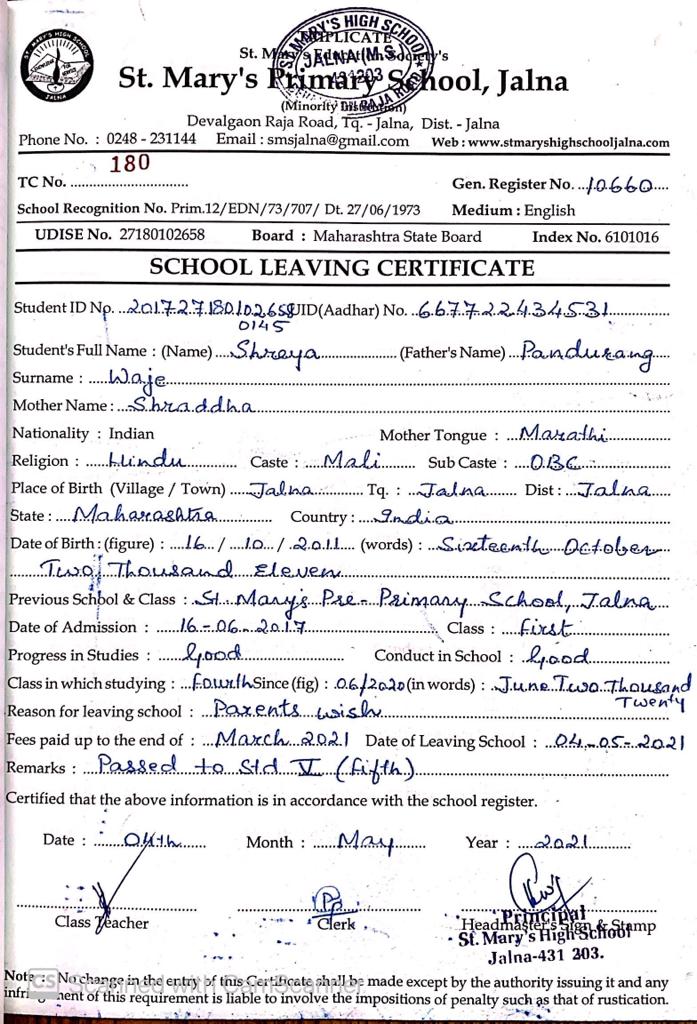 ST. MARY'S HIGH SCHOOL
JALNA
ST. MARY'S HIGH SCHOOL
JALNA (M.S.)
431203
DUPLICATE
St. Mary's Education Society's
St. Mary's Primary School, Jalna
(Minority Institution)
Devalgaon Raja Road, Tq. - Jalna, Dist. - Jalna
Phone No. : 0248 - 231144 Email : smsjalna@gmail.com Web : www.stmaryshighschooljalna.com
TC No. 180 Gen. Register No. 10660
School Recognition No. Prim.12/EDN/73/707/ Dt. 27/06/1973 Medium : English
UDISE No. 27180102658 Board : Maharashtra State Board Index No. 6101016
SCHOOL LEAVING CERTIFICATE
Student ID No. 201727180102658 UID(Aadhar) No. 667722434531
0145
Student's Full Name : (Name) Shreya (Father's Name) Pandurang
Surname : Waje
Mother Name : Shraddha
Nationality : Indian Mother Tongue : Marathi
Religion : Hindu Caste : Mali Sub Caste : OBC
Place of Birth (Village / Town) Jalna Tq. : Jalna Dist : Jalna
State : Maharashtra Country : India
Date of Birth : (figure) : 16 / 10 / 2011 (words) : Sixteenth October
Two Thousand Eleven
Previous School & Class : St. Mary's Pre-Primary School, Jalna
Date of Admission : 16-06-2017 Class : first
Progress in Studies : Good Conduct in School : Good
Class in which studying : fourth Since (fig) : 06/2020 (in words) : June Two Thousand
Twenty
Reason for leaving school : Parents wish
Fees paid up to the end of : March 2021 Date of Leaving School : 04-05-2021
Remarks : Passed to Std V (fifth)
Certified that the above information is in accordance with the school register.
Date : 04th Month : May Year : 2021
Class Teacher Clerk Headmaster's Sign & Stamp
Principal
St. Mary's High School
Jalna-431 203.
Note : No change in the entry of this Certificate shall be made except by the authority issuing it and any
infringement of this requirement is liable to involve the impositions of penalty such as that of rustication.
CS Scanned with CamScanner